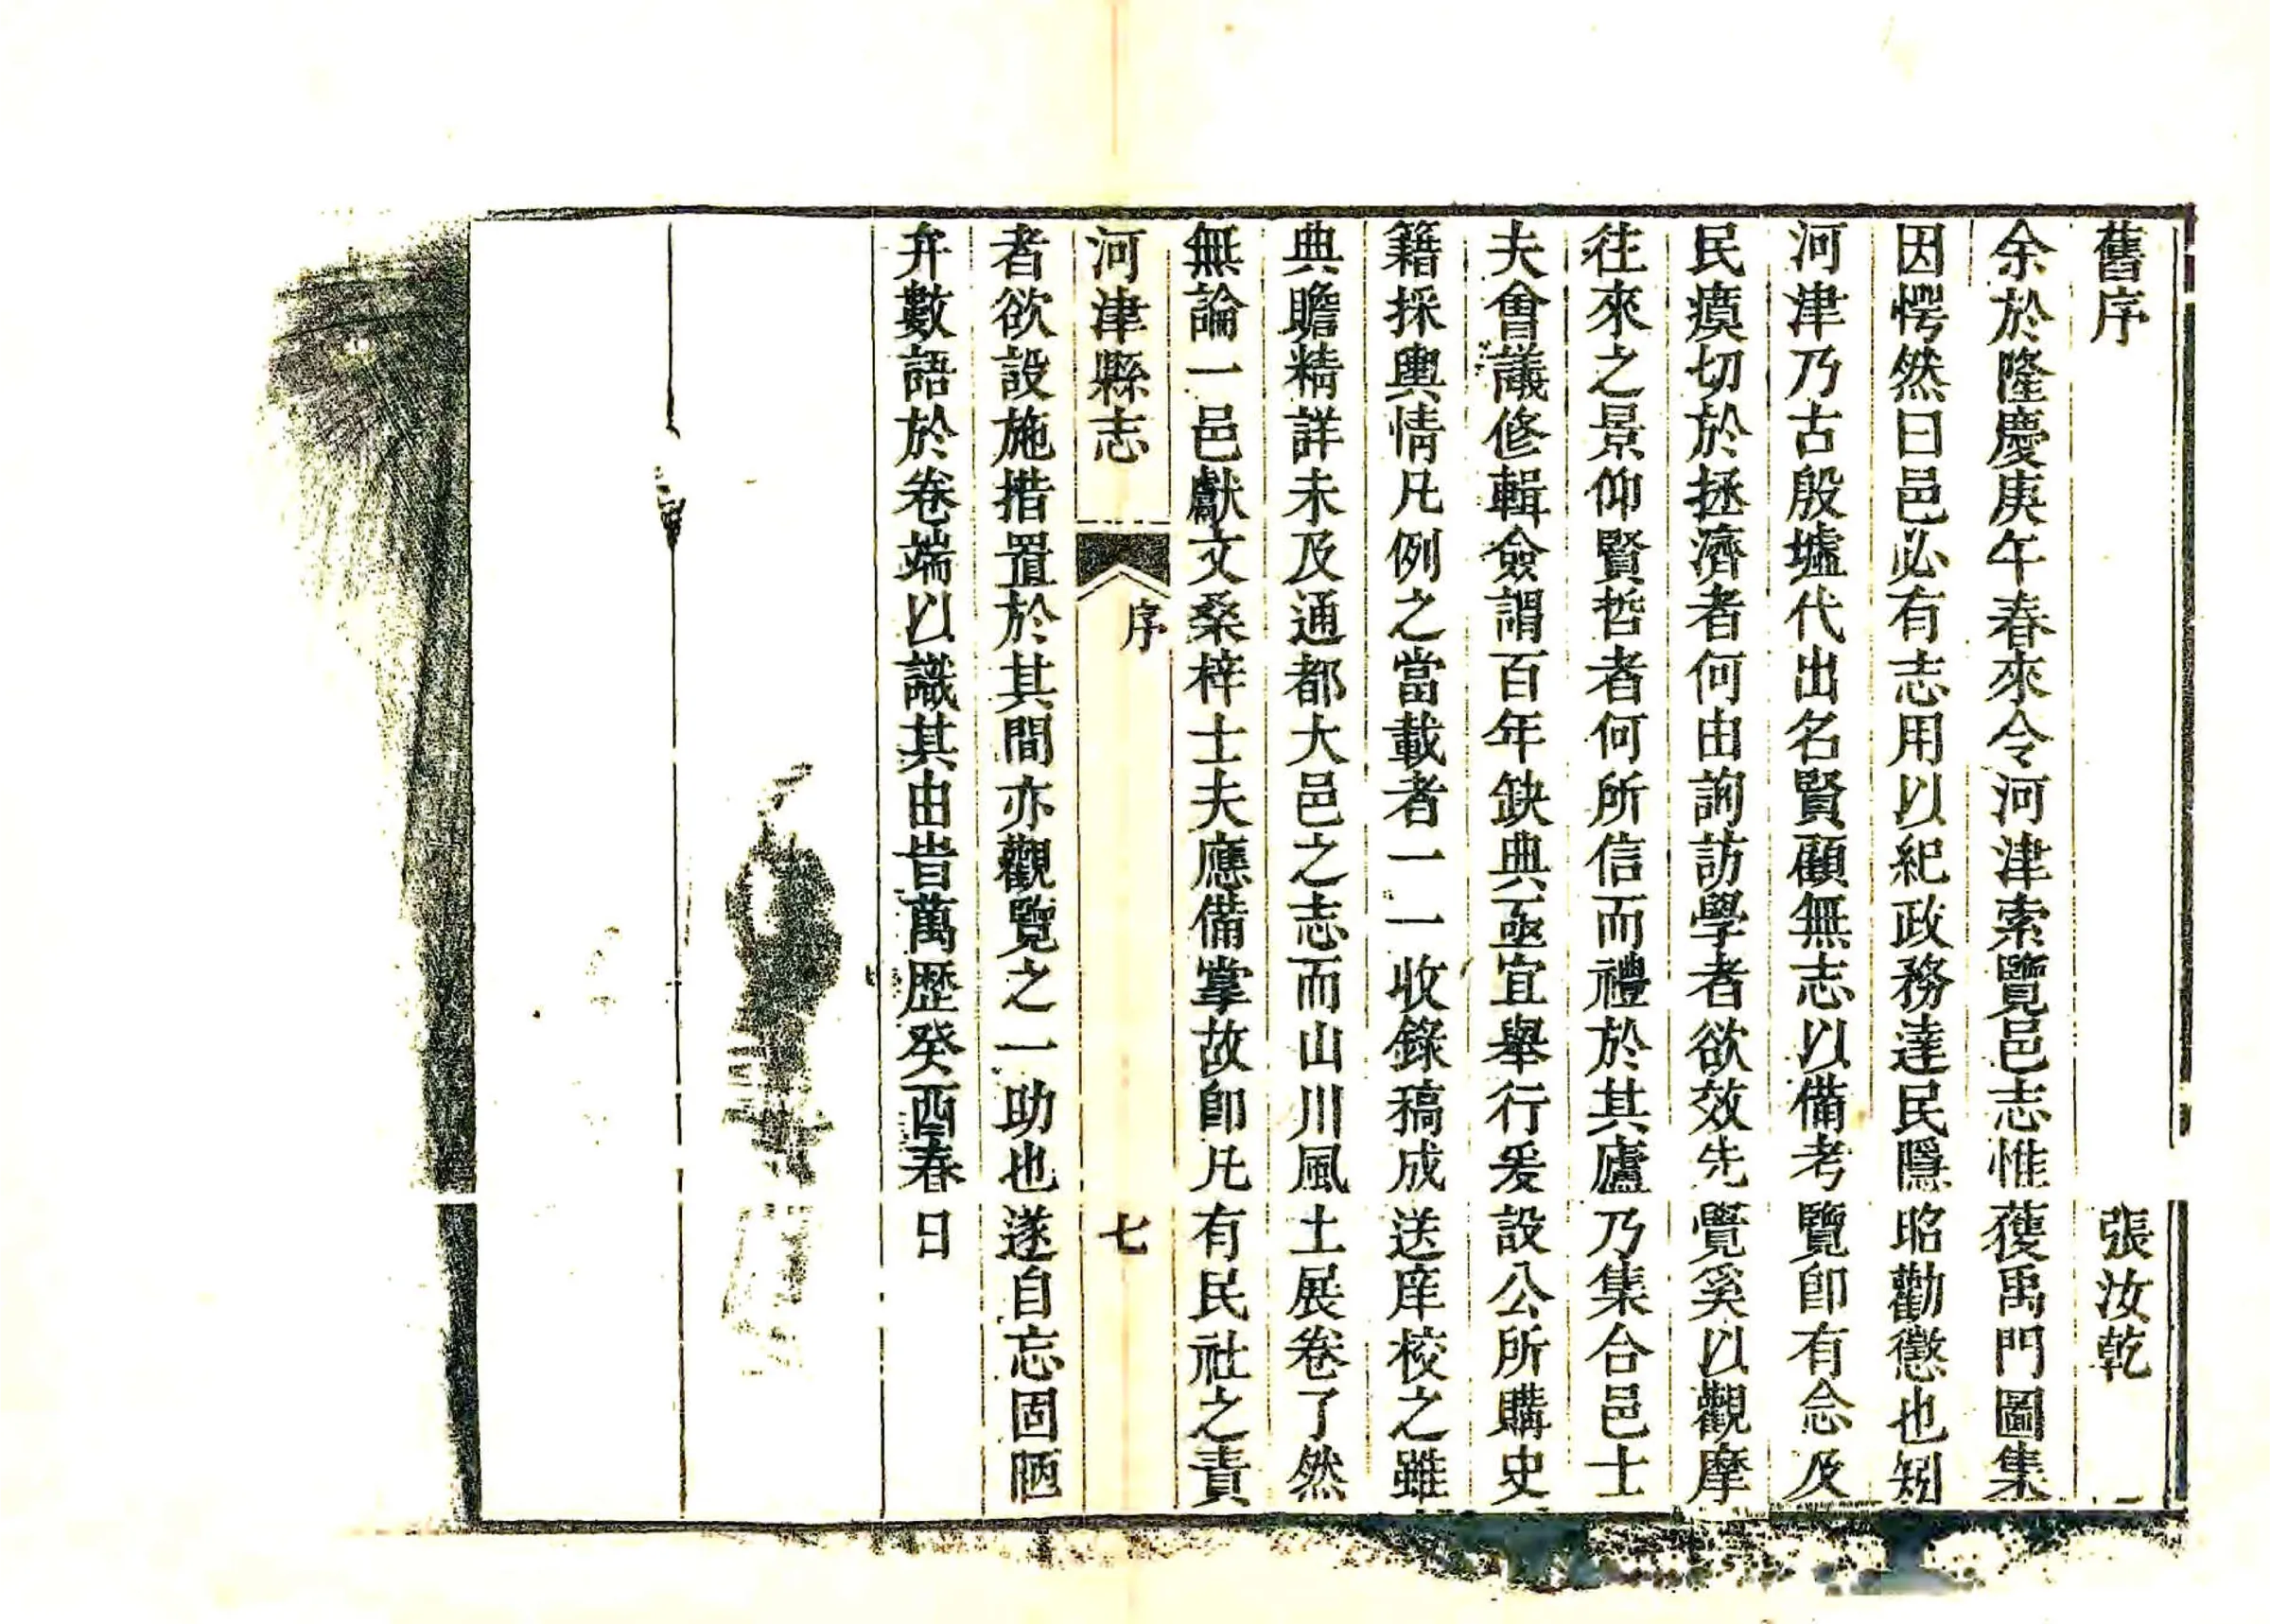 舊序 張汝乾
余於隆慶庚午春來令河津索覽邑志惟獲禹門圖集
因愕然曰邑必有志用以紀政務達民隱昭勸懲也矧
河津乃古殷墟代出名賢顧無志以備考覽卽有念及
民瘼切於拯濟者何由詢訪學者欲效先覺奚以觀摩
往來之景仰賢哲者何所信而禮於其廬乃集合邑士
夫會議修輯僉謂百年缺典亟宜舉行爰設公所購史
籍採輿情凡例之當載者一一收錄稿成送庠校之雖
典贍精詳未及通都大邑之志而山川風土展卷了然
無論一邑獻文桑梓士夫應備掌故卽凡有民社之責
河津縣志 序 七
者欲設施措置於其間亦觀覽之一助也遂自忘固陋
弁數語於卷端以識其由旹萬歷癸酉春日